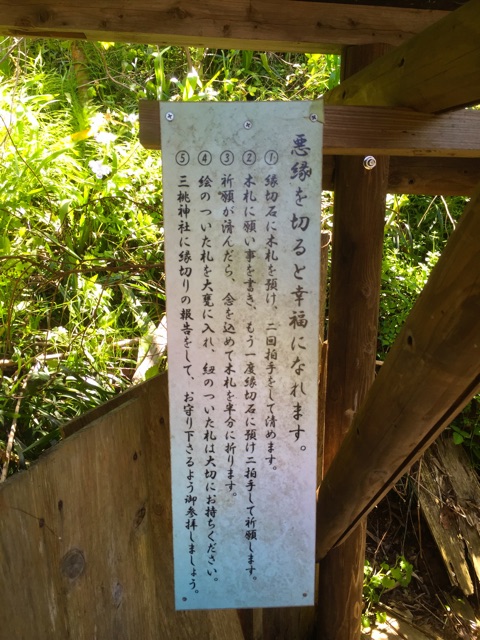 悪縁を切ると幸福になれます。
① 縁切石に木札を預け、二回拍手をして清めます。
② 木札に願い事を書き、もう一度縁切石に預け二拍手して祈願します。
③ 祈願が済んだら、念を込めて木札を半分に折ります。
④ 絵のついた札を大甕に入れ、紐のついた札は大切にお持ちください。
⑤ 三桃神社に縁切りの報告をして、お守り下さるよう御参拝しましょう。